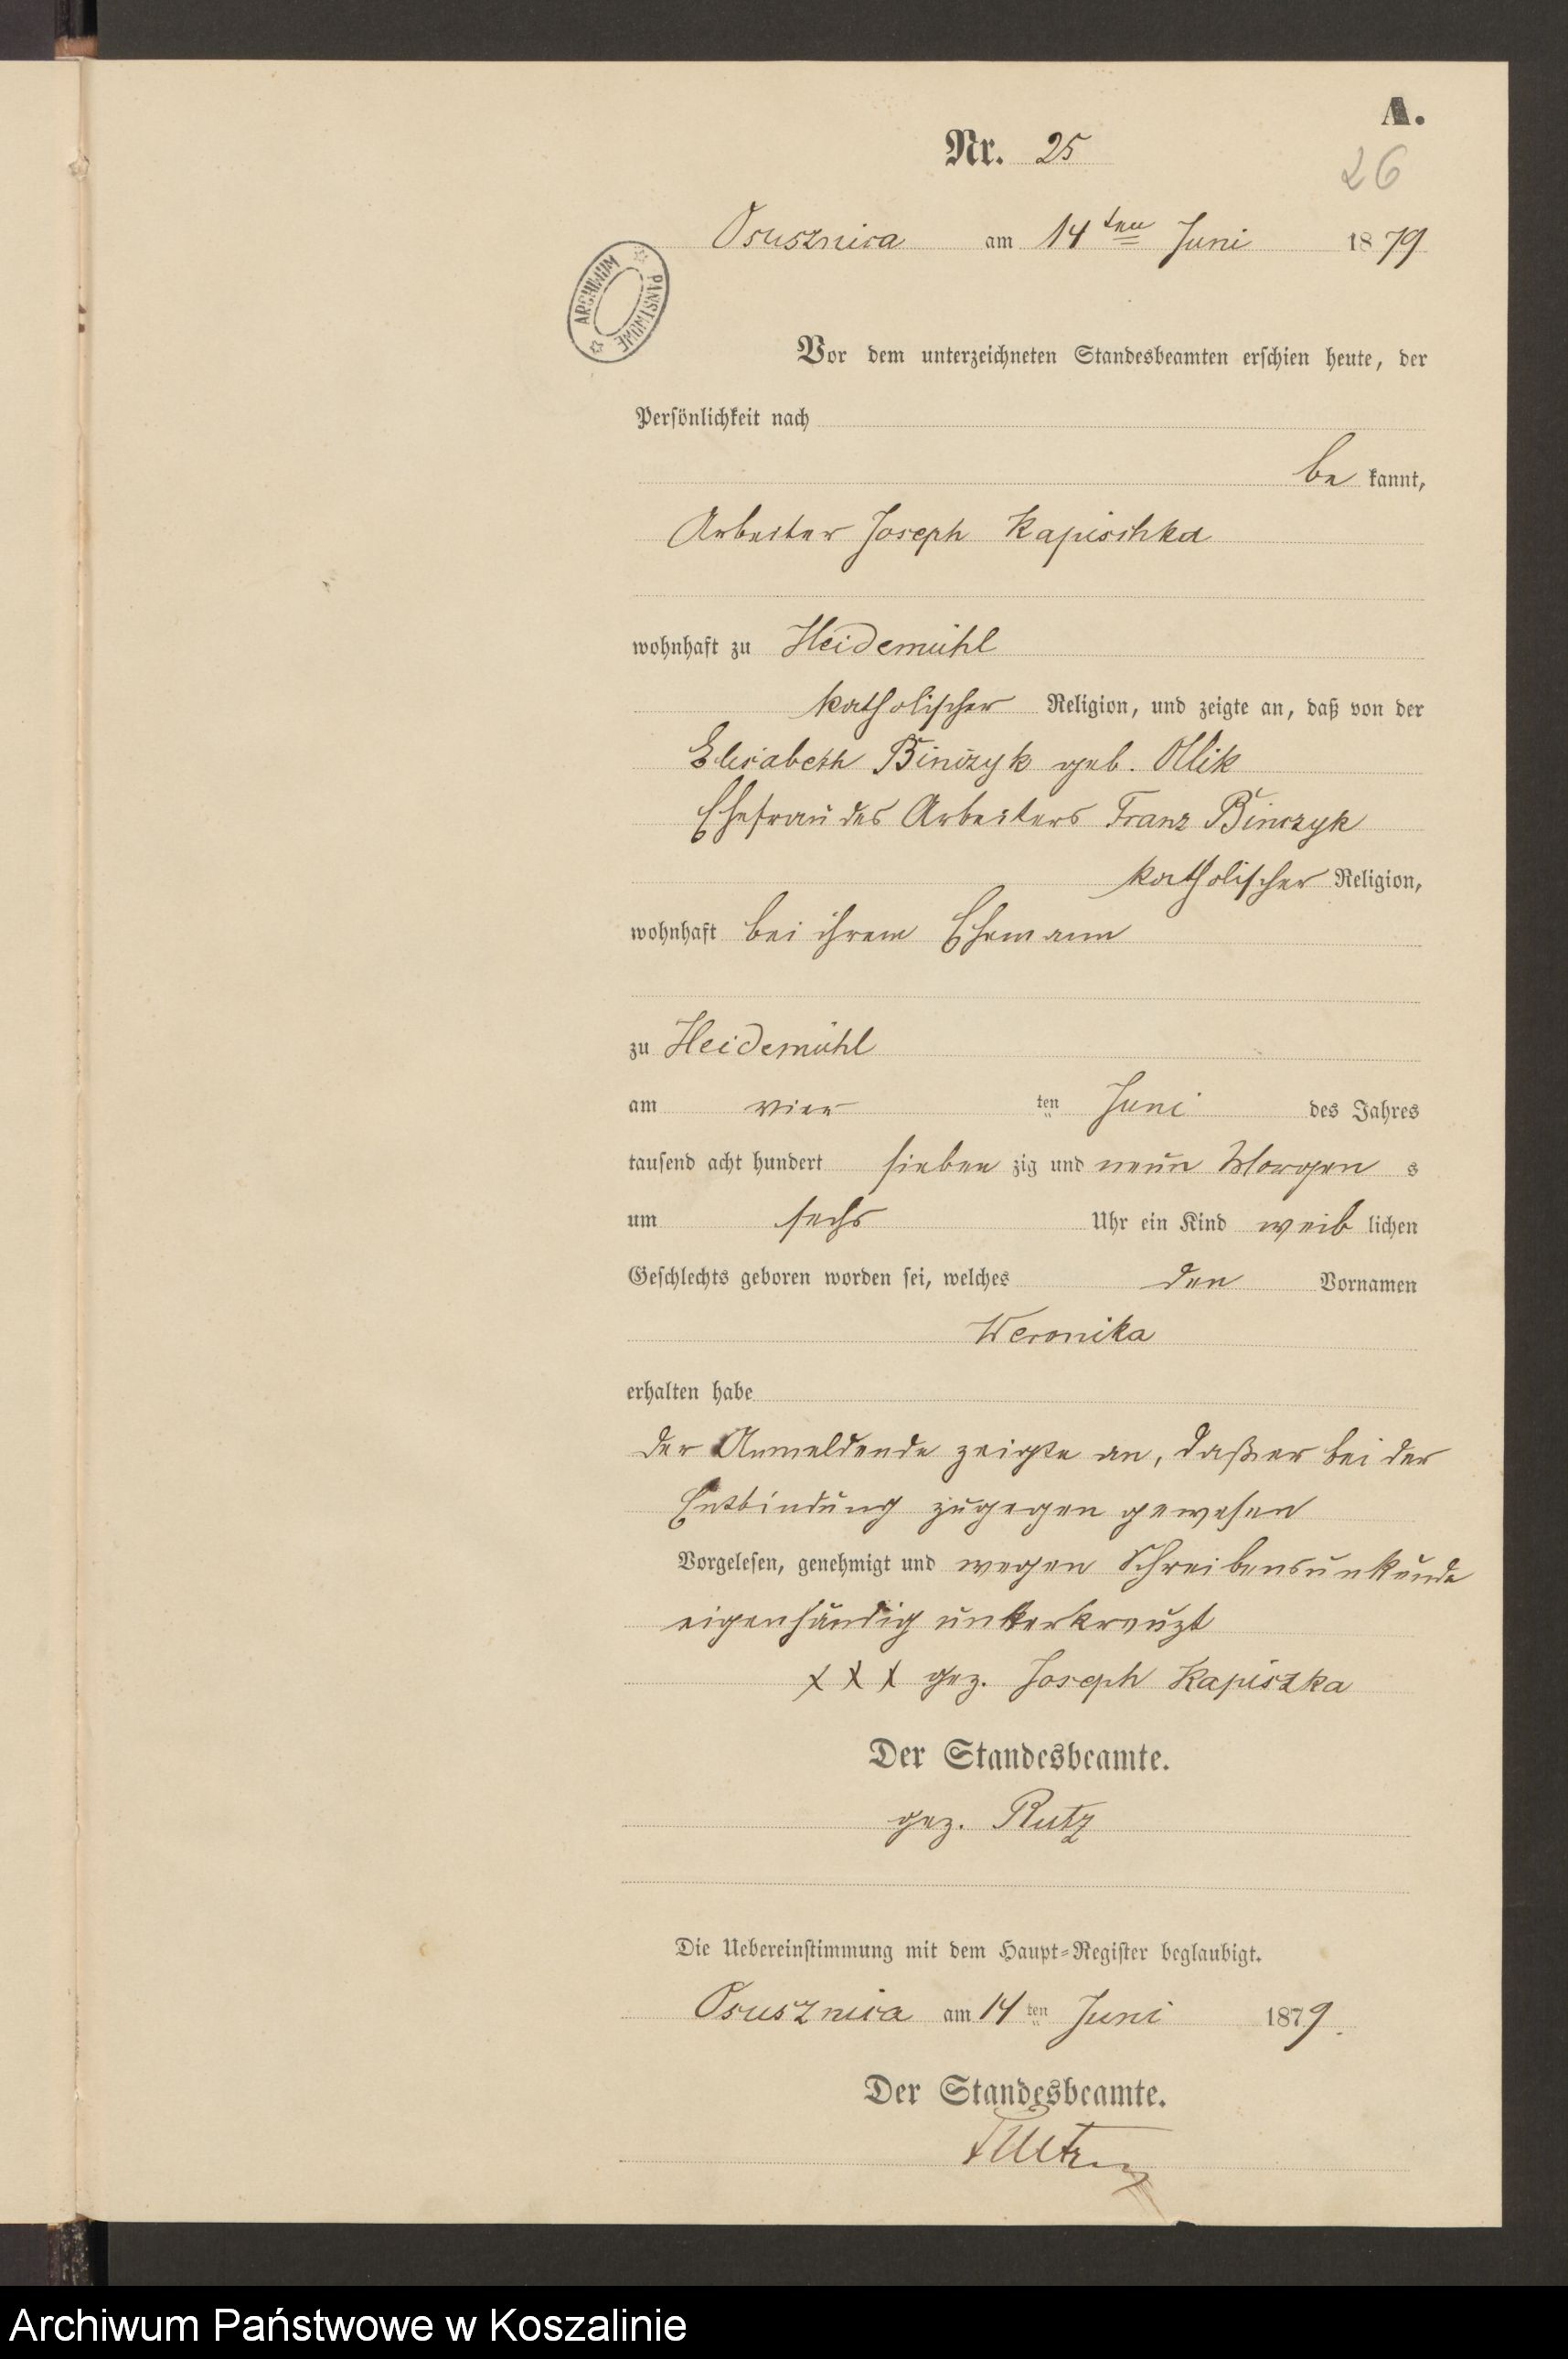 A.
Nr. 25
26
Osusznica am 14ten Juni 1879
ARCHIWUM PAŃSTWOWE
Vor dem unterzeichneten Standesbeamten erschien heute, der
Persönlichkeit nach
be kannt,
Arbeiter Joseph Kapischka
wohnhaft zu Heidemühl
katholischer Religion, und zeigte an, daß von der
Elisabeth Binczyk geb. Ollik
Ehefrau des Arbeiters Franz Binczyk
katholischer Religion,
wohnhaft bei ihrem Ehemann
zu Heidemühl
am vier ten Juni des Jahres
tausend acht hundert sieben zig und neun Morgen s
um sechs Uhr ein Kind weib lichen
Geschlechts geboren worden sei, welches den Vornamen
Weronika
erhalten habe
Der Anmeldende zeigte an, daß er bei der
Entbindung zugegen gewesen
Vorgelesen, genehmigt und wegen Schreibensunkunde
eigenhändig unterkreuzt
XXX gez. Joseph Kapiszka
Der Standesbeamte.
gez. Rutz
Die Uebereinstimmung mit dem Haupt-Register beglaubigt.
Osusznica am 14 ten Juni 1879.
Der Standesbeamte.
Archiwum Państwowe w Koszalinie